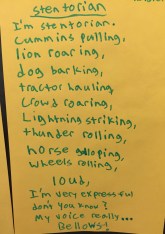 stentorian
I'm stentorian.
Cummins pulling,
lion roaring,
dog barking,
tractor hauling
Crowd roaring,
Lightning striking,
thunder rolling,
horse galloping,
wheels rolling,
loud,
I'm very expressful
don't you know?
My voice really...
Bellows!